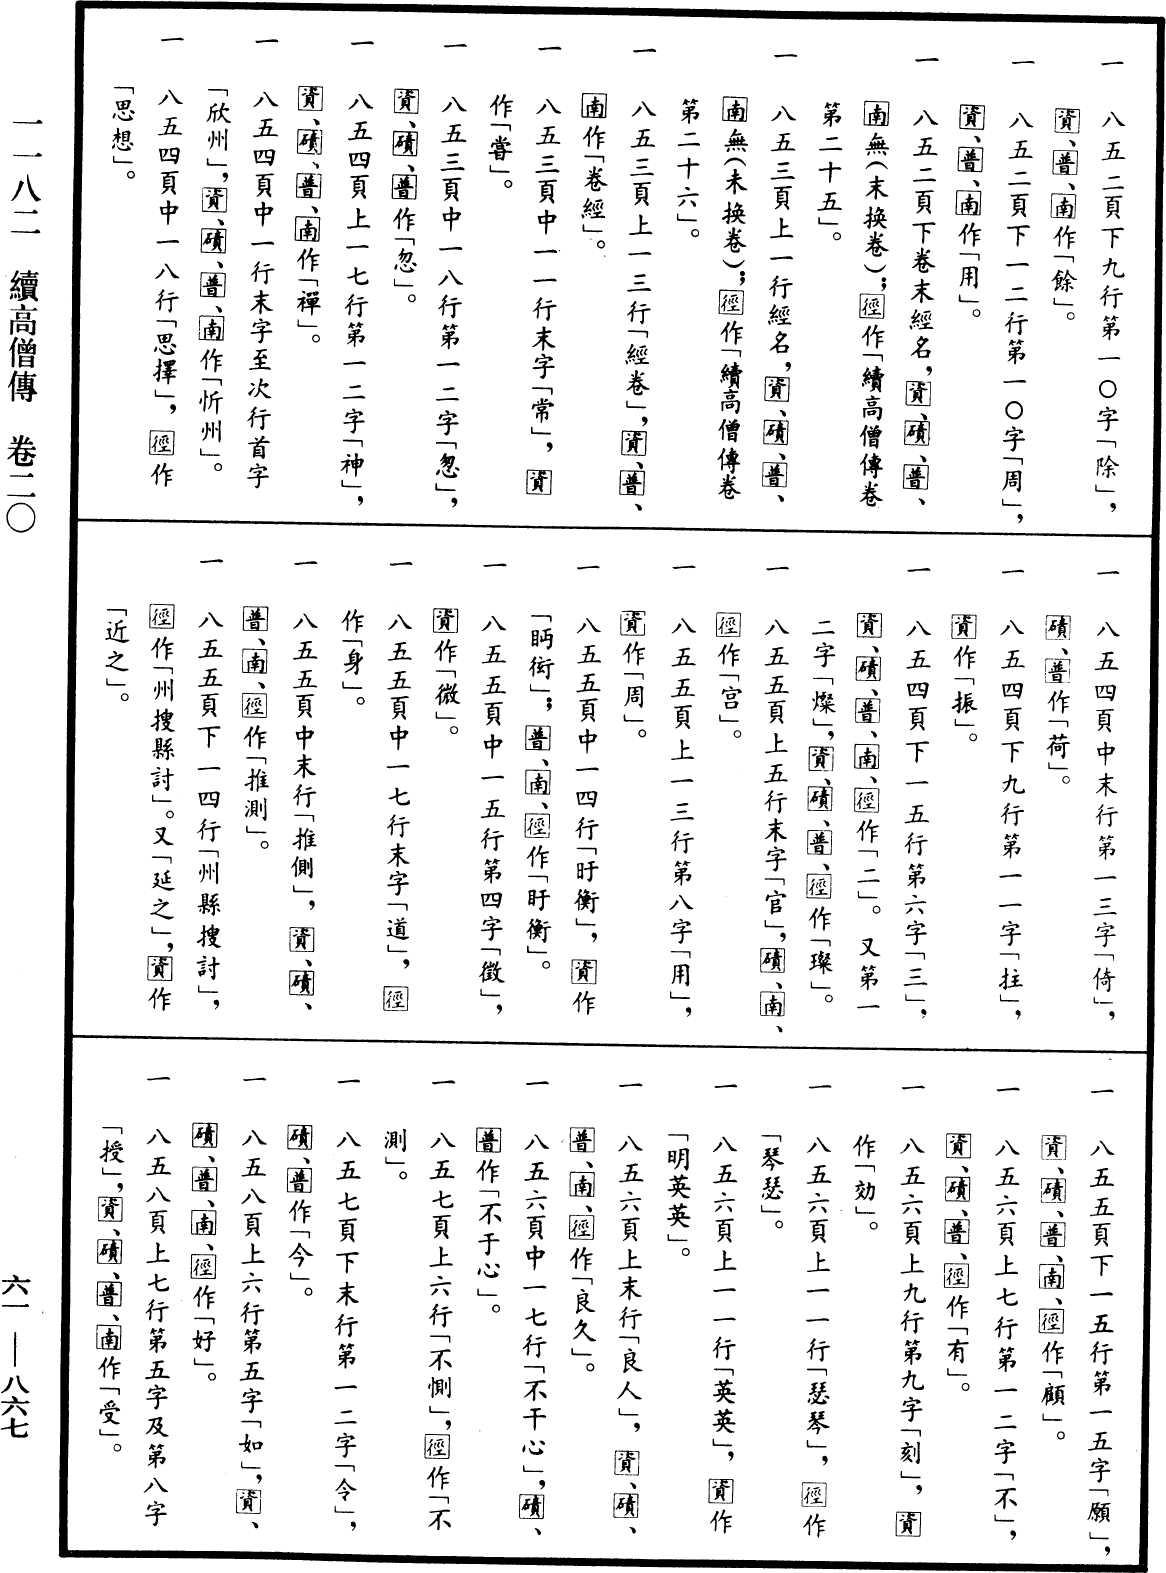 一　八五二頁下九行第一〇字「除」，
資、普、南作「餘」。
一　八五二頁下一二行第一〇字「周」，
資、普、南作「用」。
一　八五二頁下卷末經名，資、磧、普、
南無（未換卷）；徑作「續高僧傳卷
第二十五」。
一　八五三頁上一行經名，資、磧、普、
南無（未換卷）；徑作「續高僧傳卷
第二十六」。
一　八五三頁上一三行「經卷」，資、普、
南作「卷經」。
一　八五三頁中一一行末字「常」，資
作「嘗」。
一　八五三頁中一八行第一二字「忽」，
資、磧、普作「忽」。
一　八五四頁上一七行第一二字「神」，
資、磧、普、南作「禪」。
一　八五四頁中一行末字至次行首字
「欣州」，資、磧、普、南作「忻州」。
一　八五四頁中一八行「思擇」，徑作
「思想」。
一　八五四頁中末行第一三字「倚」，
磧、普作「荷」。
一　八五四頁下九行第一一字「拄」，
資作「振」。
一　八五四頁下一五行第六字「三」，
資、磧、普、南、徑作「二」。又第一
二字「燦」，資、磧、普、徑作「璨」。
一　八五五頁上五行末字「官」，磧、南、
徑作「宫」。
一　八五五頁上一三行第八字「用」，
資作「周」。
一　八五五頁中一四行「盱衡」，資作
「眄衒」；普、南、徑作「盱衡」。
一　八五五頁中一五行第四字「徵」，
資作「微」。
一　八五五頁中一七行末字「道」，徑
作「身」。
一　八五五頁中末行「推側」，資、磧、
普、南、徑作「推測」。
一　八五五頁下一四行「州縣搜討」，
徑作「州搜縣討」。又「延之」，資作
「近之」。
一　八五五頁下一五行第一五字「願」，
資、磧、普、南、徑作「顧」。
一　八五六頁上七行第一二字「不」，
資、磧、普、徑作「有」。
一　八五六頁上九行第九字「刻」，資
作「効」。
一　八五六頁上一一行「瑟琴」，徑作
「琴瑟」。
一　八五六頁上一一行「英英」，資作
「明英英」。
一　八五六頁上末行「良人」，資、磧、
普、南、徑作「良久」。
一　八五六頁中一七行「不干心」，磧、
普作「不于心」。
一　八五七頁上六行「不惻」，徑作「不
測」。
一　八五七頁下末行第一二字「令」，
磧、普作「今」。
一　八五八頁上六行第五字「如」，資、
磧、普、南、徑作「好」。
一　八五八頁上七行第五字及第八字
「授」，資、磧、普、南作「受」。
一一八二　續高僧傳　卷二〇
六一——八六七